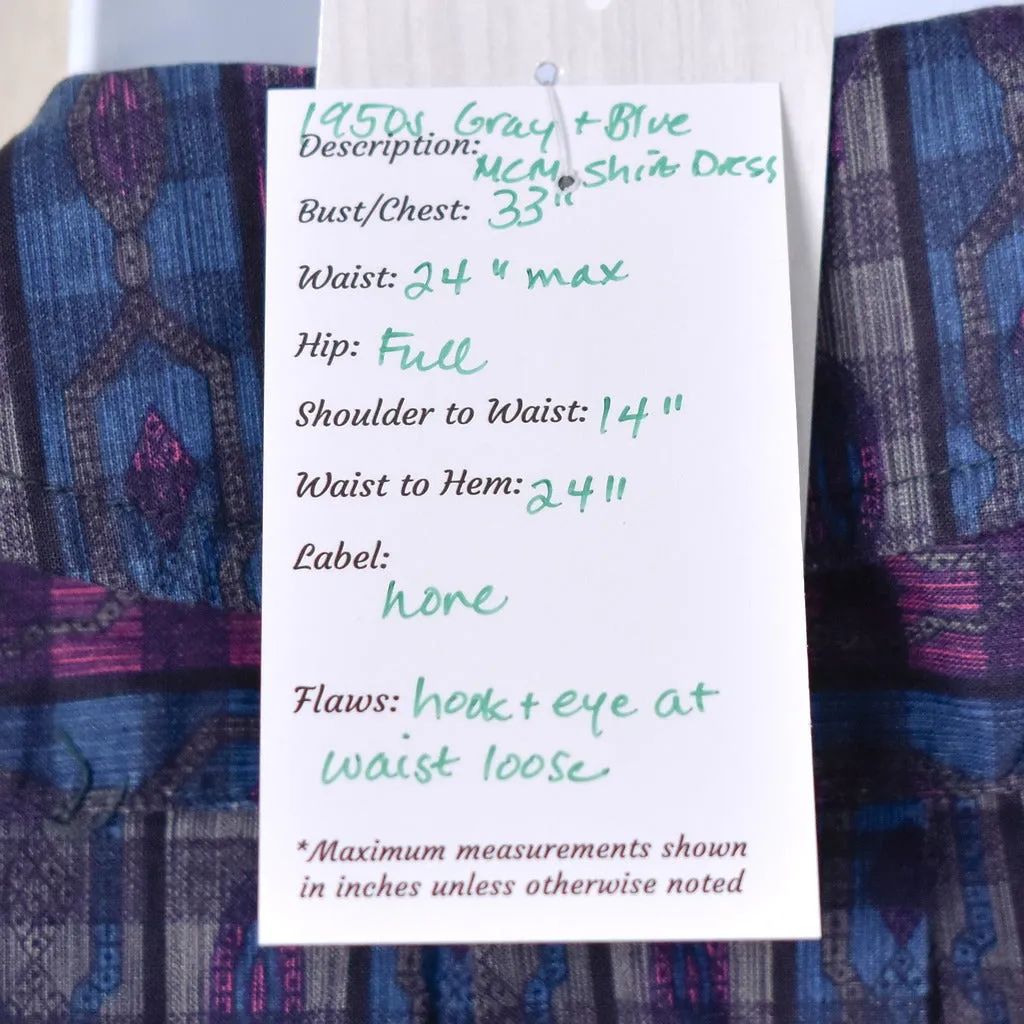 1950s Gray + Blue
Description:
MCM Shirt Dress
Bust/Chest: 33"
Waist: 24" max
Hip: Full
Shoulder to Waist: 14"
Waist to Hem: 24"
Label:
none
Flaws: hook + eye at
waist loose
*Maximum measurements shown
in inches unless otherwise noted